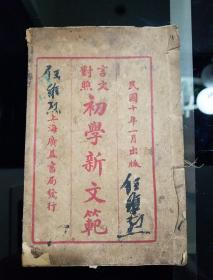 民國十年一月出版
言文對照
初學新文範
上海廣益書局發行